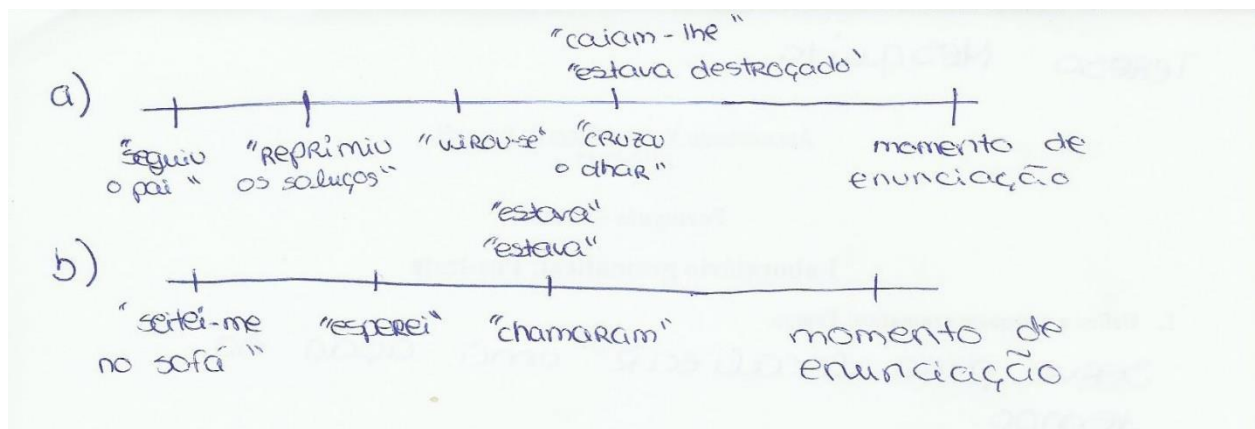 "caiam-lhe"
"estava destroçado"
a)
"seguiu
o pai"
"REPRimiu
os soluços"
"viROU-se"
"CRUZOU
o olhaR"
momento de
enunciação
"estava"
"estava"
b)
"sentei-me
no sofá"
"esperei"
"chamaRam"
momento de
enunciação